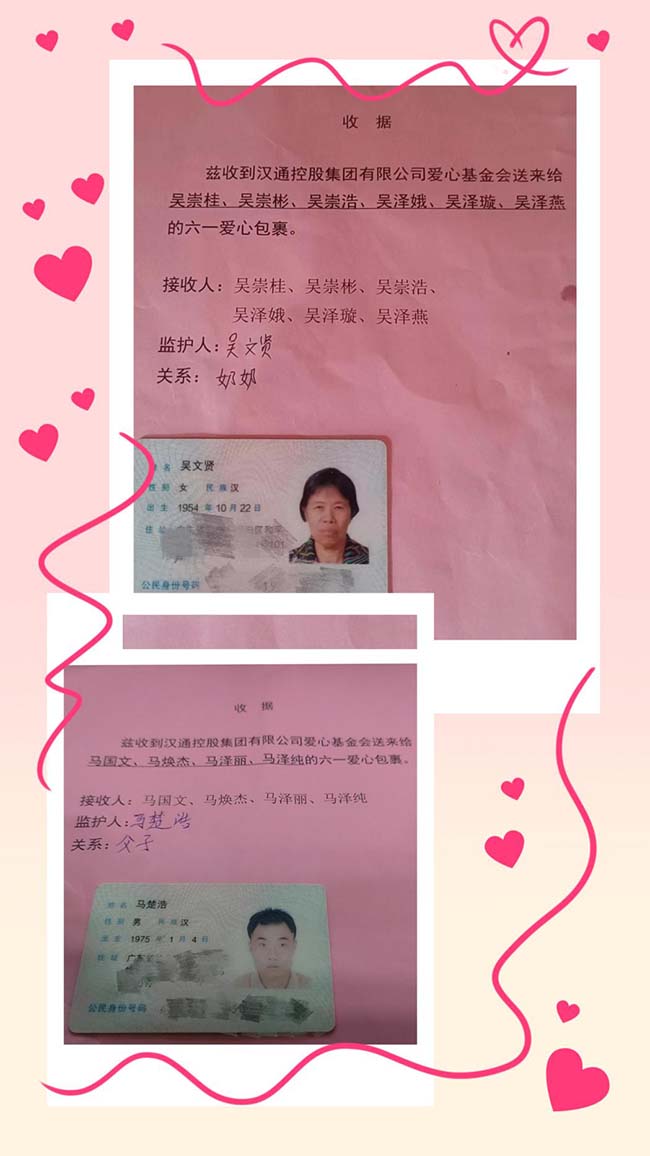 收 据
兹收到汉通控股集团有限公司爱心基金会送来给
吴崇桂、吴崇彬、吴崇浩、吴泽娥、吴泽璇、吴泽燕
的六一爱心包裹。
接收人：吴崇桂、吴崇彬、吴崇浩、
吴泽娥、吴泽璇、吴泽燕
监护人：吴文贤
关系：奶奶
姓名 吴文贤
性别 女 民族 汉
出生 1954 年 10 月 22 日
住址
公民身份号码
收 据
兹收到汉通控股集团有限公司爱心基金会送来给
马国文、马焕杰、马泽丽、马泽纯的六一爱心包裹。
接收人：马国文、马焕杰、马泽丽、马泽纯
监护人：马楚浩
关系：父子
姓名 马楚浩
性别 男 民族 汉
出生 1975 年 1 月 4 日
住址 广东
公民身份号码